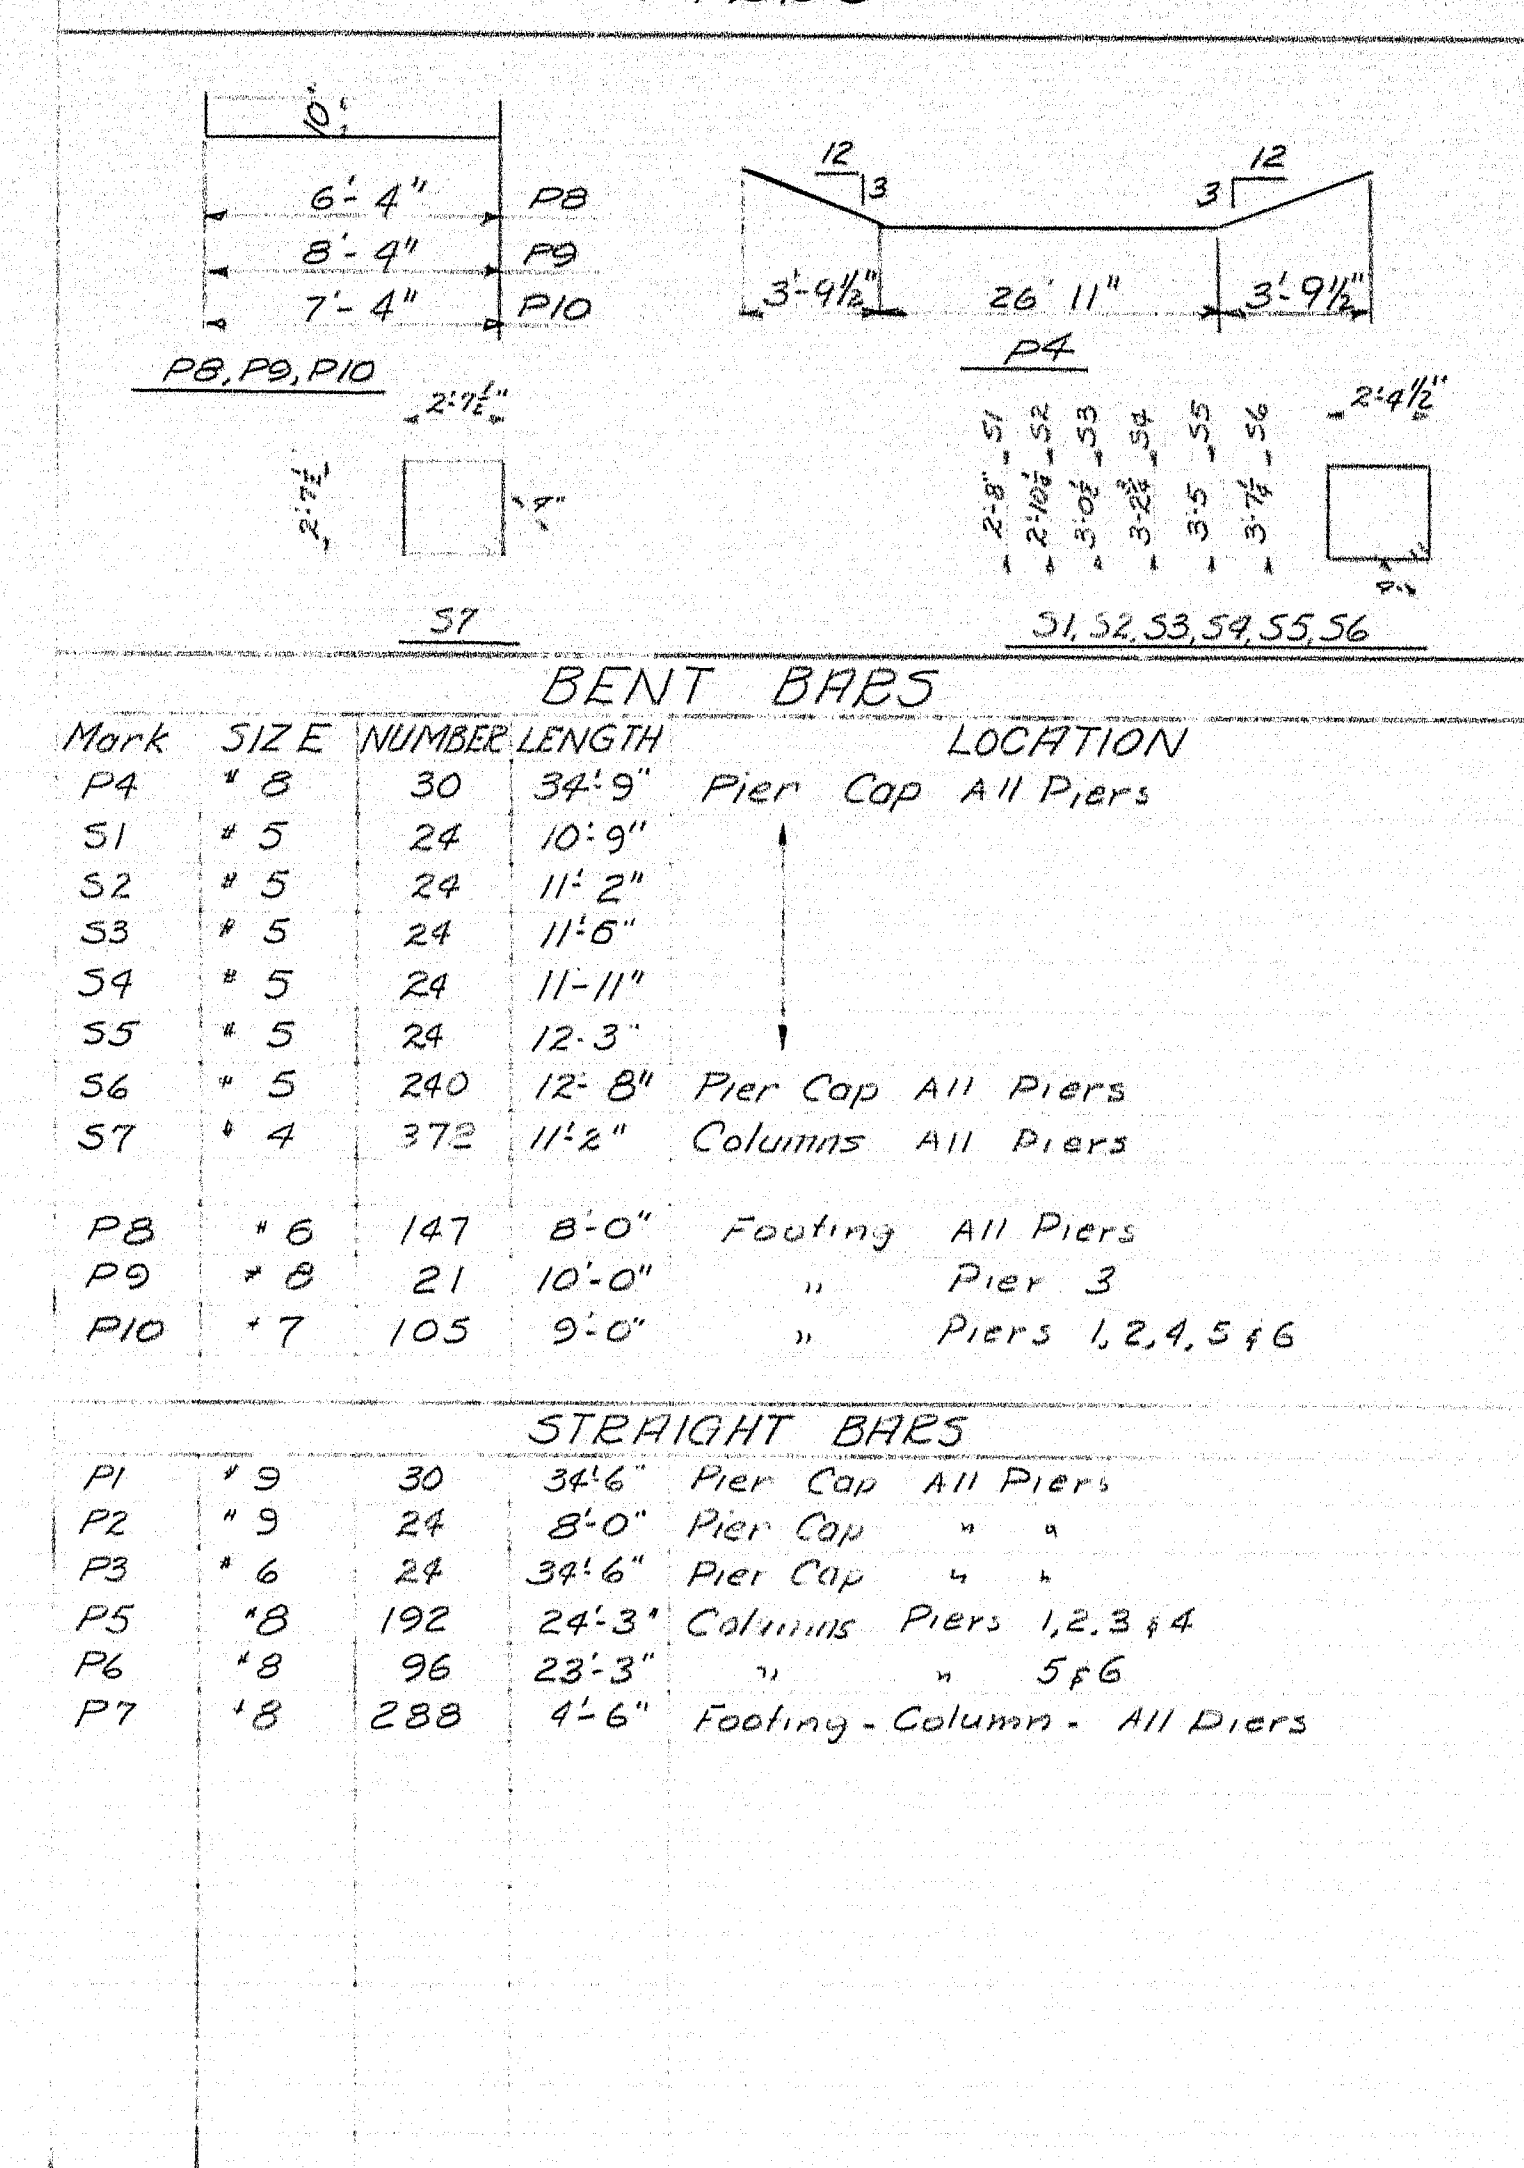 10"
6'-4" P8
8'-4" P9
7'-4" P10
P8, P9, P10
12
3
12
3
3'-9½"
26' 11"
3'-9½"
P4
2'-7½"
2'-7½"
4"
S7
2'-8" S1
2'-10¼ S2
3'-0½ S3
3-2¾ S4
3-5 S5
3'-7¼ S6
2'-4½"
S1, S2, S3, S4, S5, S6
BENT BARS
Mark SIZE NUMBER LENGTH LOCATION
P4 #8 30 34'-9" Pier Cap All Piers
S1 #5 24 10'-9"
S2 #5 24 11'-2"
S3 #5 24 11'-6"
S4 #5 24 11-11"
S5 #5 24 12-3"
S6 #5 240 12'-8" Pier Cap All Piers
S7 #4 372 11'-2" Columns All Piers
P8 #6 147 8'-0" Footing All Piers
P9 #8 21 10'-0" " Pier 3
P10 #7 105 9'-0" " Piers 1, 2, 4, 5 & 6
STRAIGHT BARS
P1 #9 30 34'-6" Pier Cap All Piers
P2 #9 24 8'-0" Pier Cap " "
P3 #6 24 34'-6" Pier Cap " "
P5 #8 192 24'-3" Columns Piers 1, 2, 3 & 4
P6 #8 96 23'-3" " " 5 & 6
P7 #8 288 4'-6" Footing - Column - All Piers